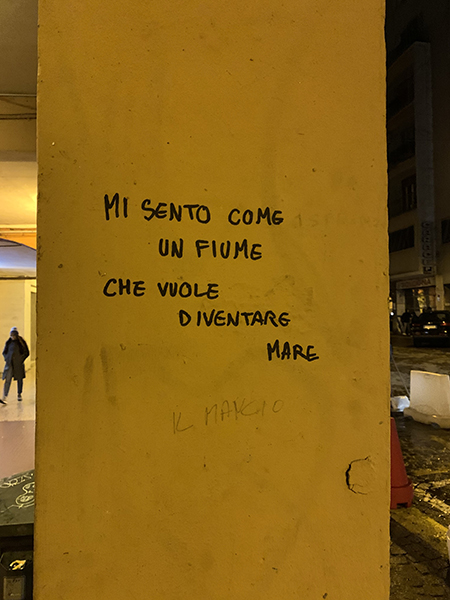 MI SENTO COME
UN FIUME
CHE VUOLE
DIVENTARE
MARE
IL